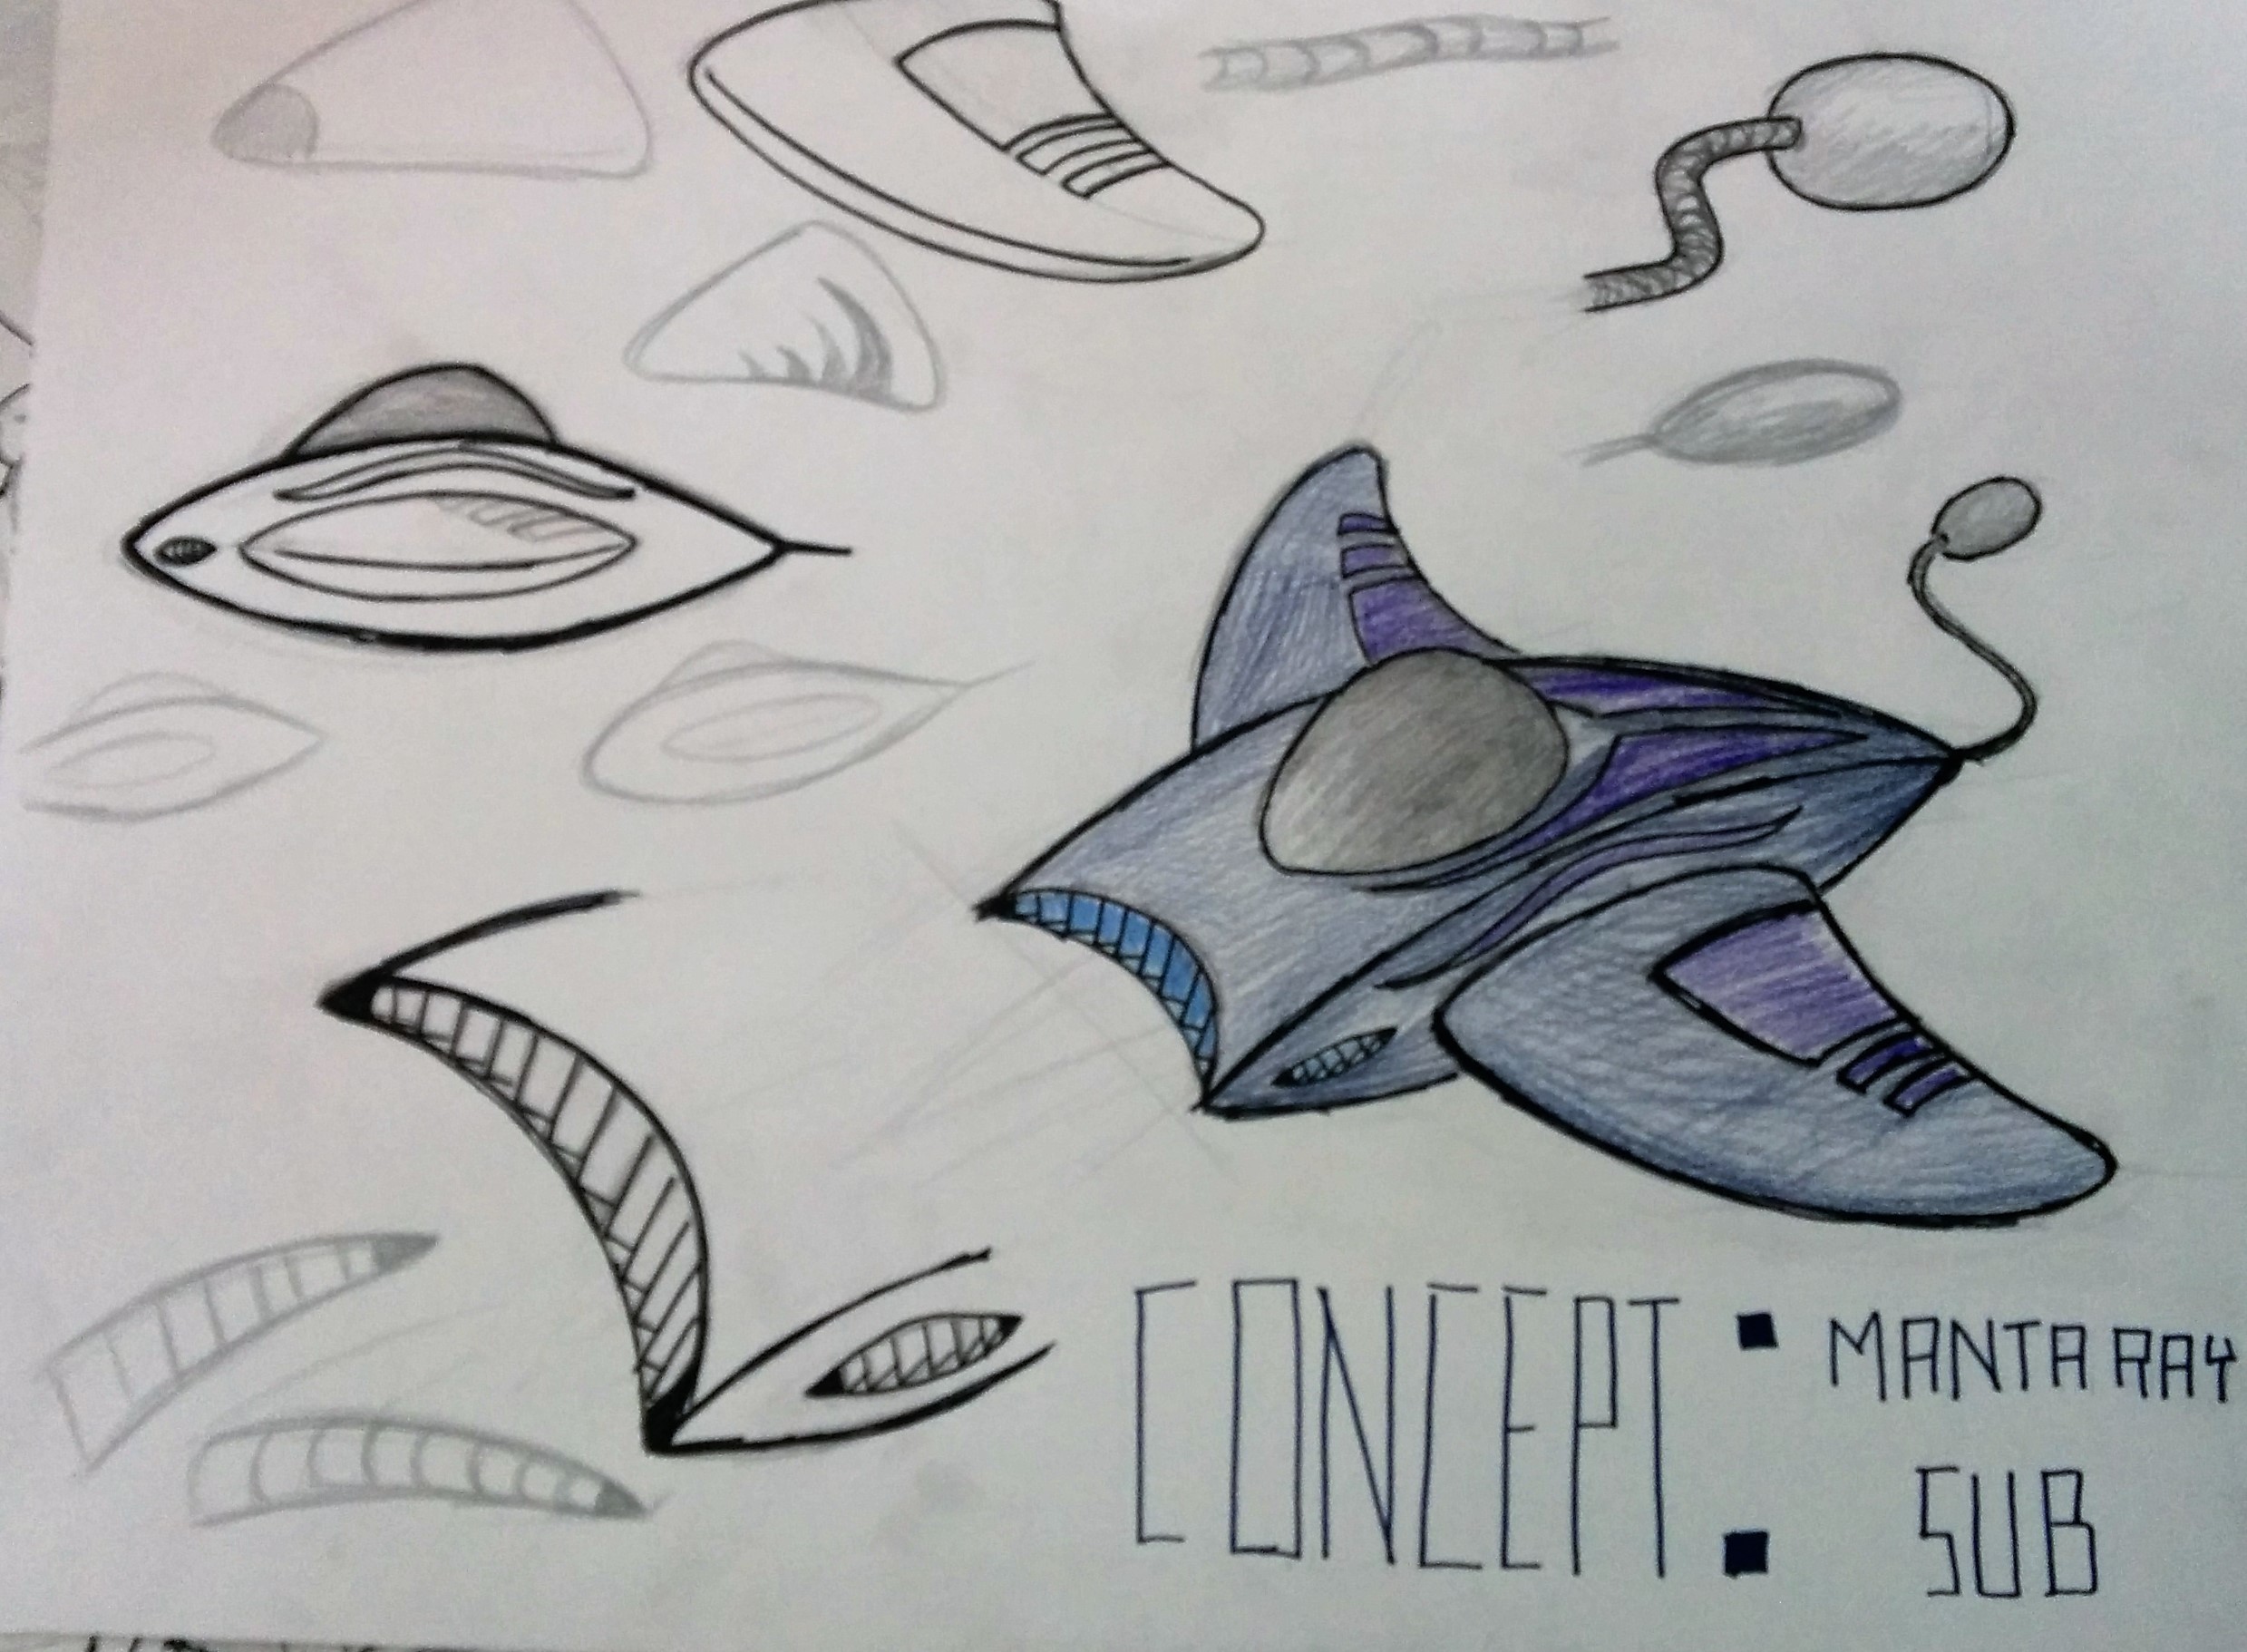 CONCEPT: MANTA RAY
SUB